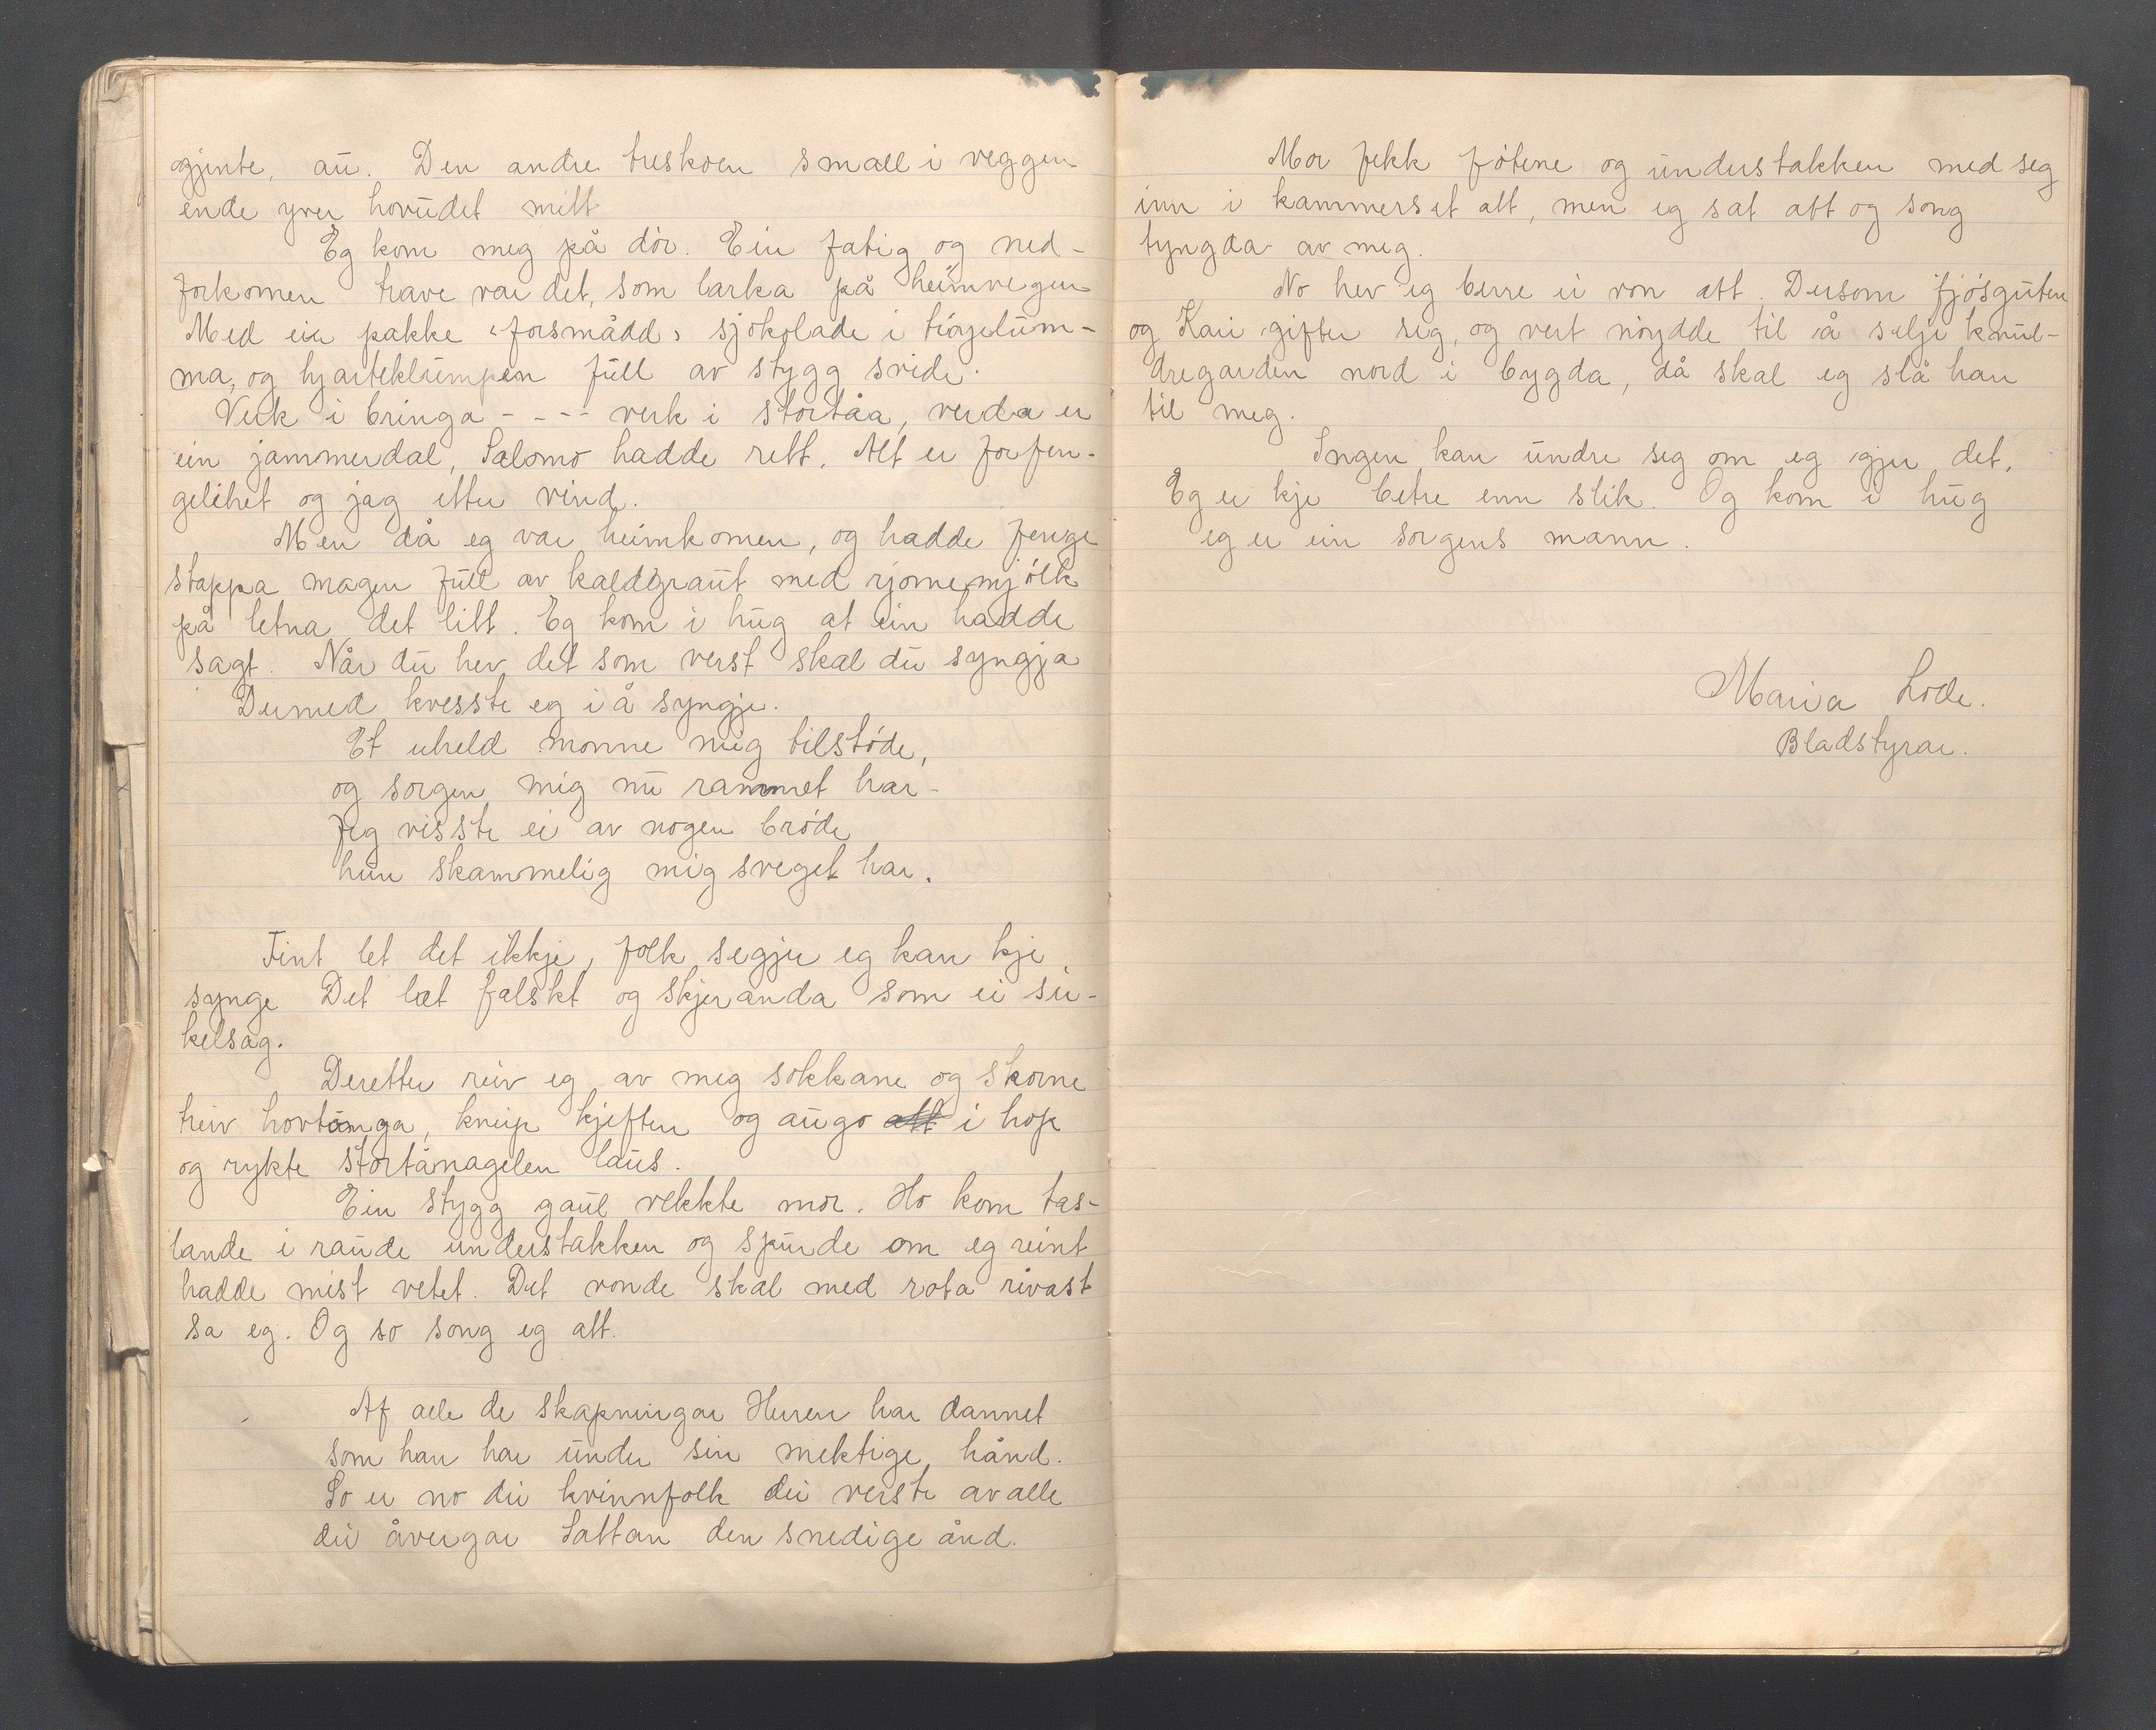 gjente, au. Den andre treskoen small i veggen
ende yver hovudet mitt
Eg kom meg på dör. Ein fatig og ned-
forkomen trave var det, som larka på heimvegen
Med ein pakke "forsmådd" sjokolade i tröyelum-
ma, og hjarteklumpen full av stygg svide.
Verk i bringa - - - - verk i stortåa, verda er
ein jammerdal, Salomo hadde rett. Alt er forfen-
gelihet og jag etter vind.
Men då eg var heimkomen, og hadde fenge
stappa magen full av kaldgraut med rjomemjölk
på letna det litt. Eg kom i hug at ein hadde
sagt. Når du hev det som verst skal du syngja
Dermed kvesste eg i å syngje.
Et uheld monne mig tilstöde,
og sorgen mig nu rammet har-
Jeg visste ei av nogen bröde
hun skammelig mig sveget har.
Fint let det ikkje, folk segjer eg kan kje
synge Det læt falskt og skjeranda som ei si-
kelsag.
Deretter reiv eg av meg sokkane og skorne
treiv hovtonga, kneip kjeften og augo att i hop
og rykte stortånagelen laus.
Ein stygg gaul vekkte mor. Ho kom tas-
lande i raude understakken og spurde om eg reint
hadde mist vetet. Det vonde skal med rota rivast
sa eg. Og so song eg att.
Af alle de skapningar Herren har dannet
som han har under sin mektige hånd.
So er no dei kvinnfolk dei verste av alle
dei åvergår Sattan den snedige ånd.
Mor fekk fötene og understakken med seg
inn i kammerset att, men eg sat att og song
tyngda av meg.
No hev eg berre ei von att. Dersom fjösguten
og Kari gifter seg, og vert nöydde til å selje knul-
dregarden nord i bygda, då skal eg slå han
til meg.
Ingen kan undre seg om eg gjer det,
Eg er kje betre enn slik. Og kom i hug
eg er ein sorgens mann.
Maria Lode.
Bladstyrar.